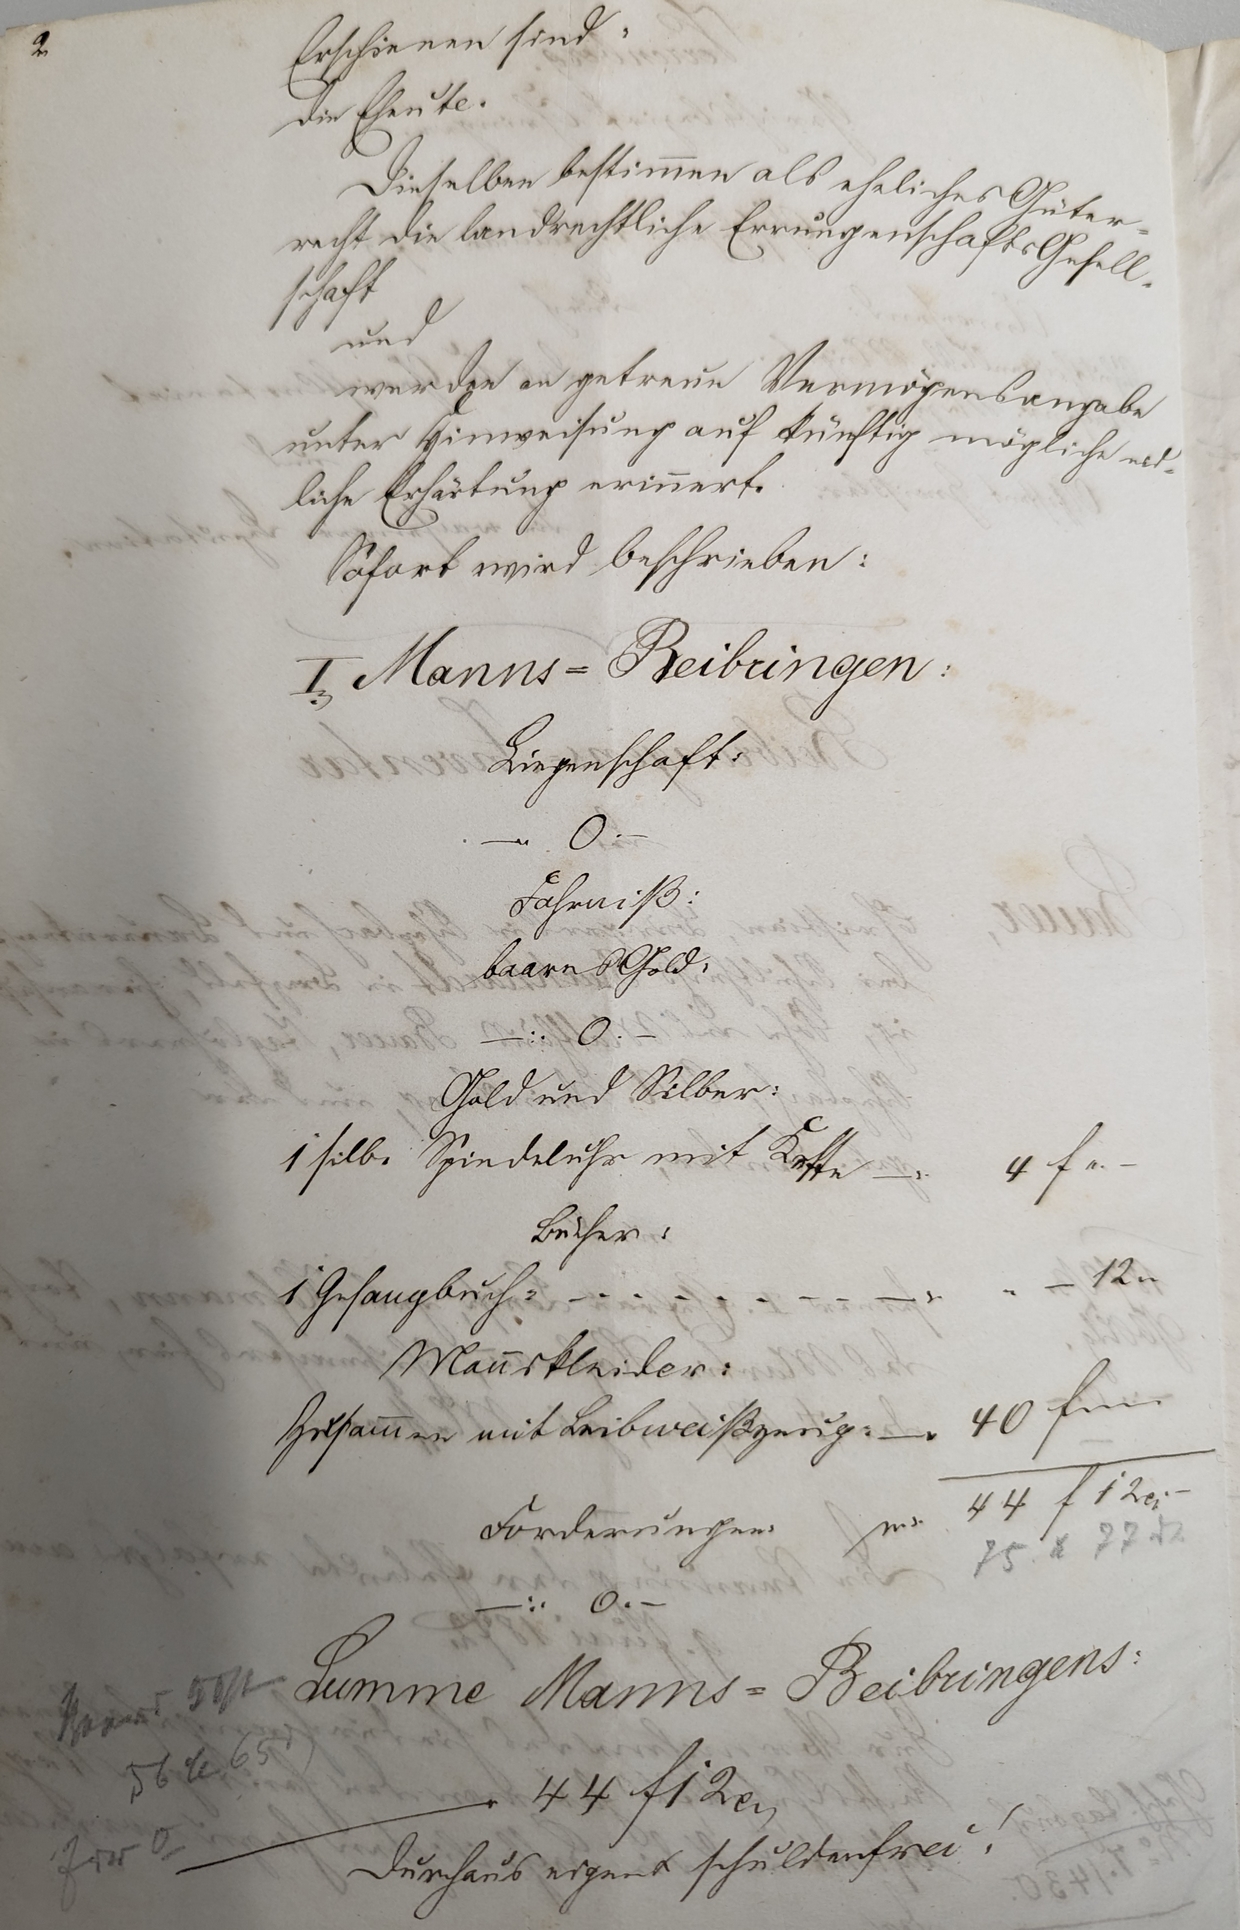 2
Erschienen sind:
die Eheleute.
Dieselben bestimmen als eheliches Güter-
recht die landrechtliche Errungenschafts Gesell-
schaft
und
werden an getreue Vermögensangabe
unter Hinweisung auf künftig mögliche eid-
liche Erhärtung erinnert.
Sofort wird beschrieben:
I, Manns= Beibringen:
Liegenschaft:
— 0. —
Fahrniß:
baares Geld:
—:. 0. —
Gold und Silber:
1 silb. Spindeluhr mit Kette —. 4 f ". —
Bücher:
1 Gesangbuch: - - - - - - - - " — 12 "
Mannskleider:
Zusammen mit Leibweißzeug: —. 40 f " —
44 f 12 x —
Forderungen: 75. 77
—:. 0. —
Summe Manns= Beibringens:
56 65
44 f 12 x,
durchaus eigen & schuldenfrei!